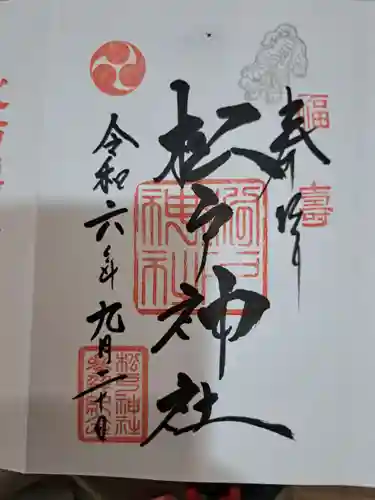 奉拝
福
壽
松戸神社
松戸神社
令和六年九月二十日
松戸神社